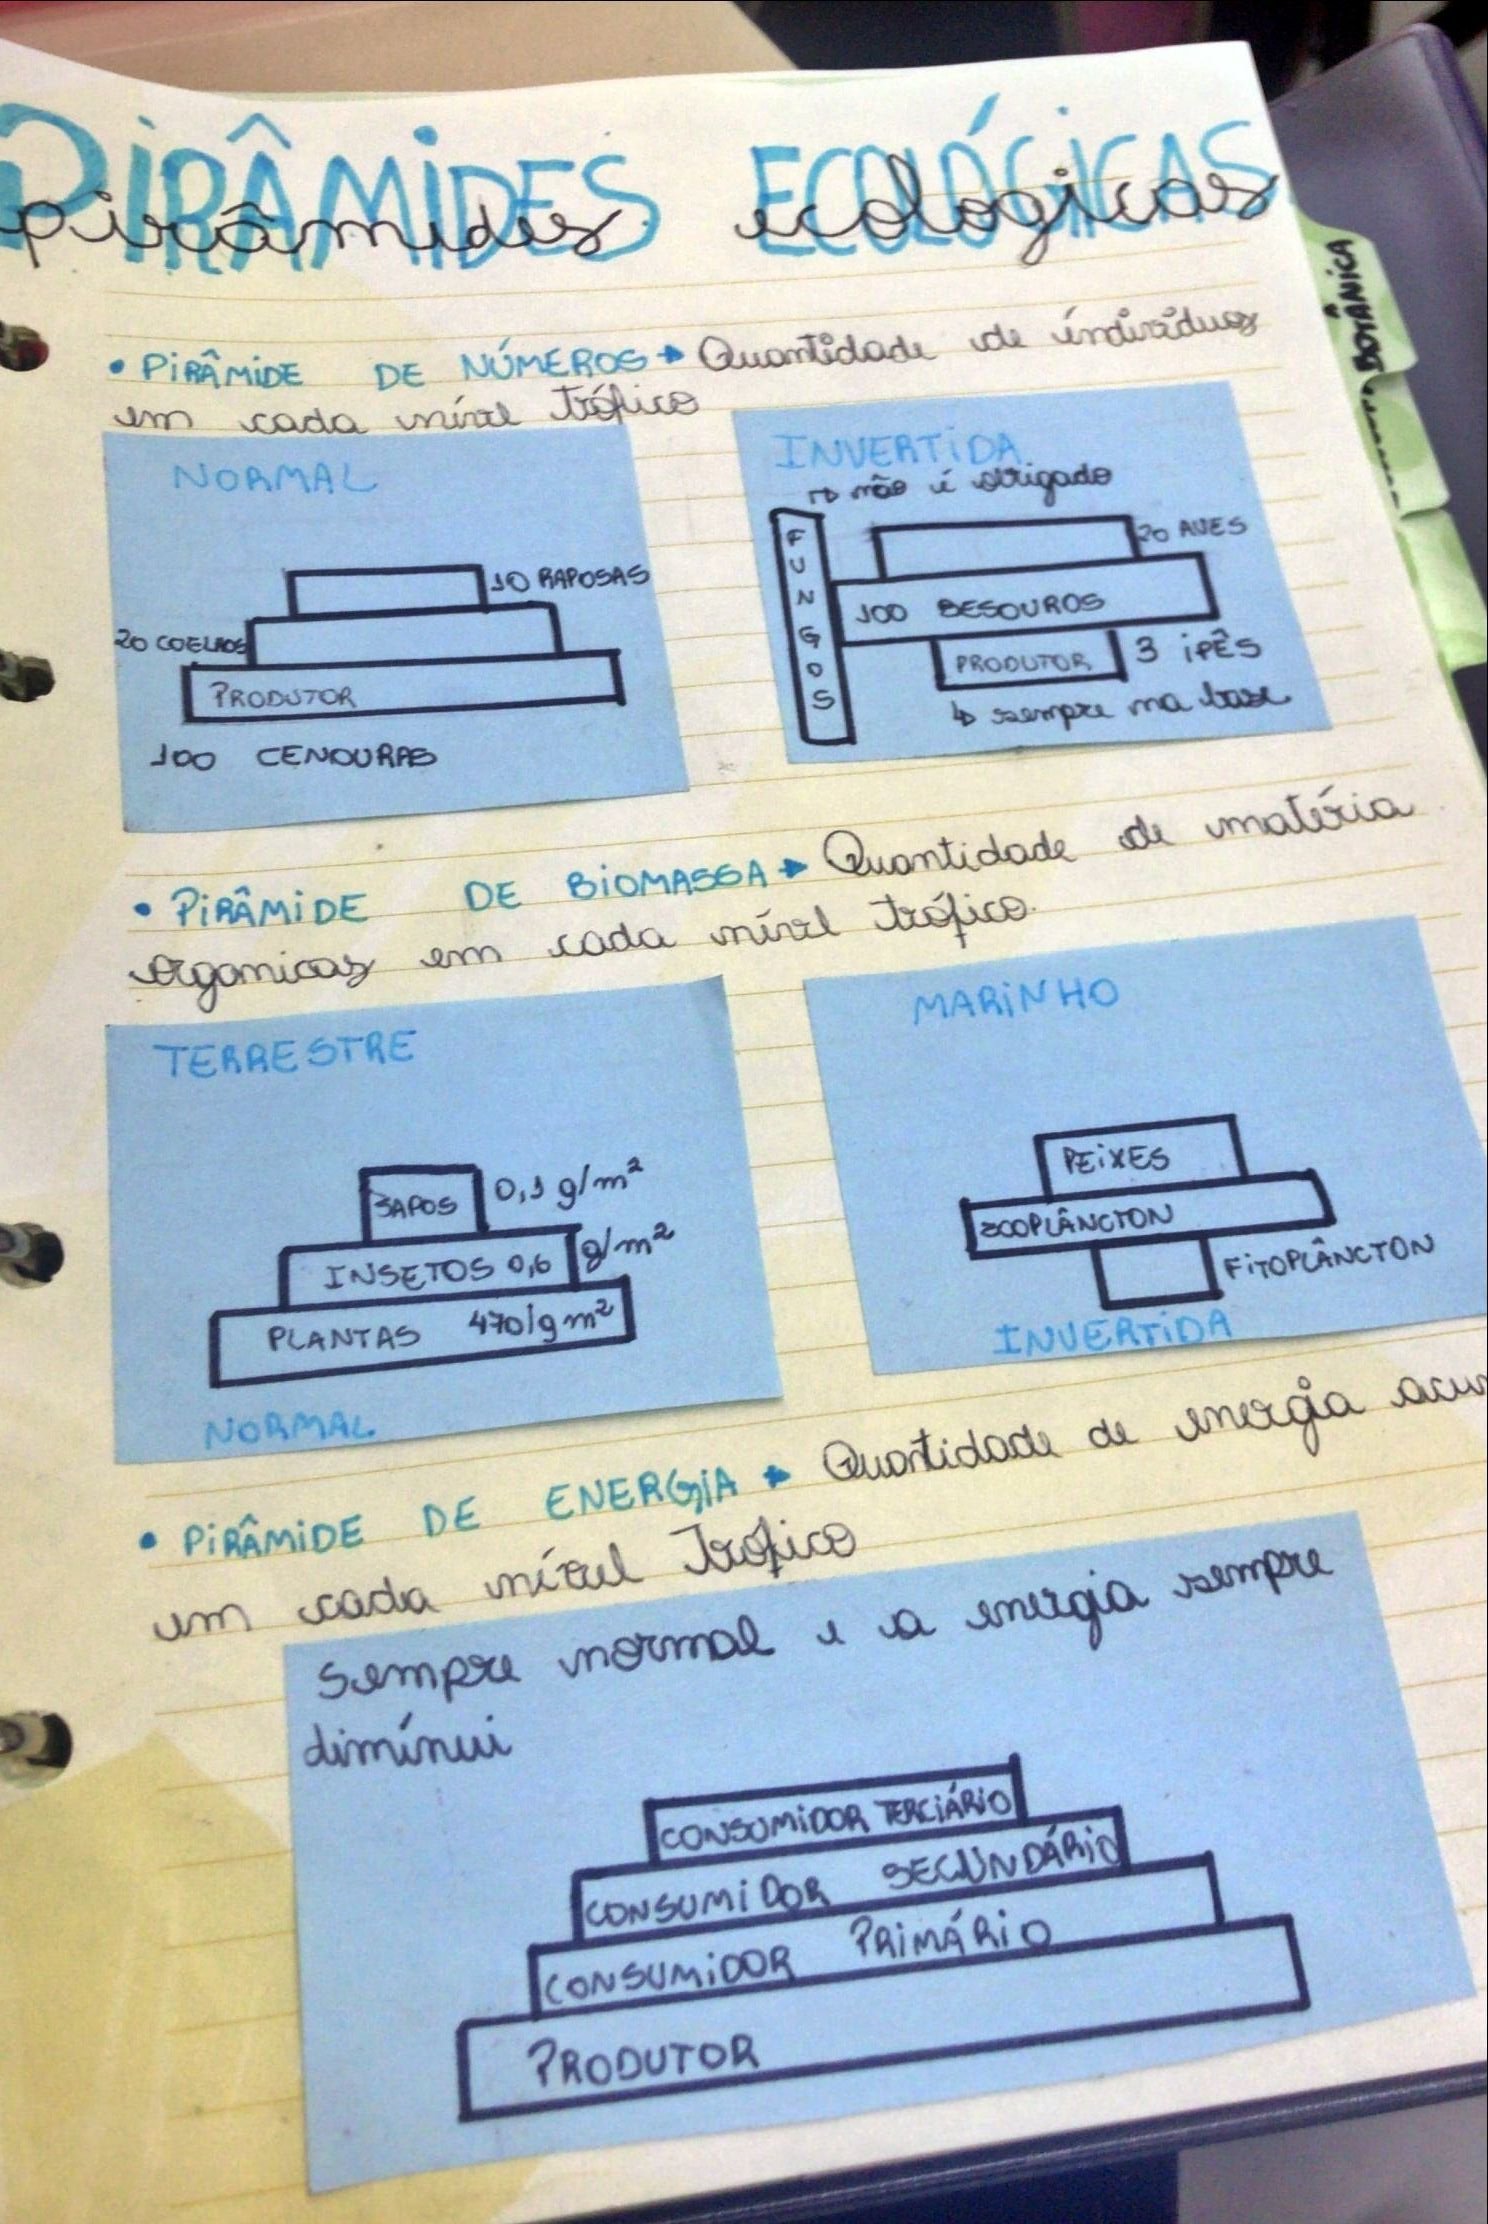 PIRÂMIDES ECOLÓGICAS
pirâmides ecologicas
BOTÂNICA
• PIRÂMIDE DE NÚMEROS → Quantidade de indivíduos
em cada nível trófico
NORMAL
10 RAPOSAS
20 COELHOS
PRODUTOR
100 CENOURAS
INVERTIDA
↳ não é obrigado
FUNGOS
20 AVES
100 BESOUROS
PRODUTOR 3 IPÊS
↳ sempre na base
• PIRÂMIDE DE BIOMASSA → Quantidade de matéria
organicas em cada nível trófico.
TERRESTRE
SAPOS 0,1 g/m²
INSETOS 0,6 g/m²
PLANTAS 470/g m²
NORMAL
MARINHO
PEIXES
ZOOPLÂNCTON
FITOPLÂNCTON
INVERTIDA
• PIRÂMIDE DE ENERGIA → Quantidade de energia
em cada nível Trófico
Sempre normal e a energia sempre
diminui
CONSUMIDOR TERCIÁRIO
CONSUMIDOR SECUNDÁRIO
CONSUMIDOR PRIMÁRIO
PRODUTOR